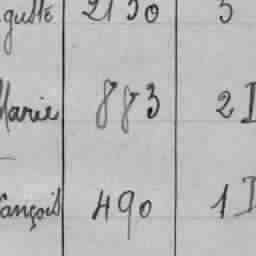 guste 2130 3
Marie 883 2 I
ançois 490 1 I